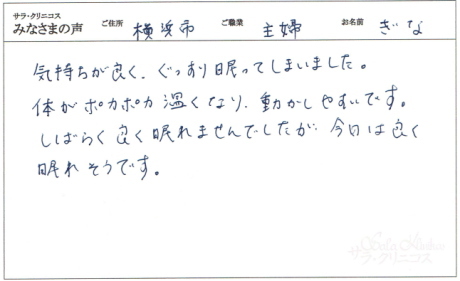 サラ・クリニコス
みなさまの声 ご住所 横浜市 ご職業 主婦 お名前 ぎな
気持ちが良く、ぐっすり眠ってしまいました。
体がポカポカ温くなり、動かしやすいです。
しばらく良く眠れませんでしたが今日は良く
眠れそうです。
サラ・クリニコス